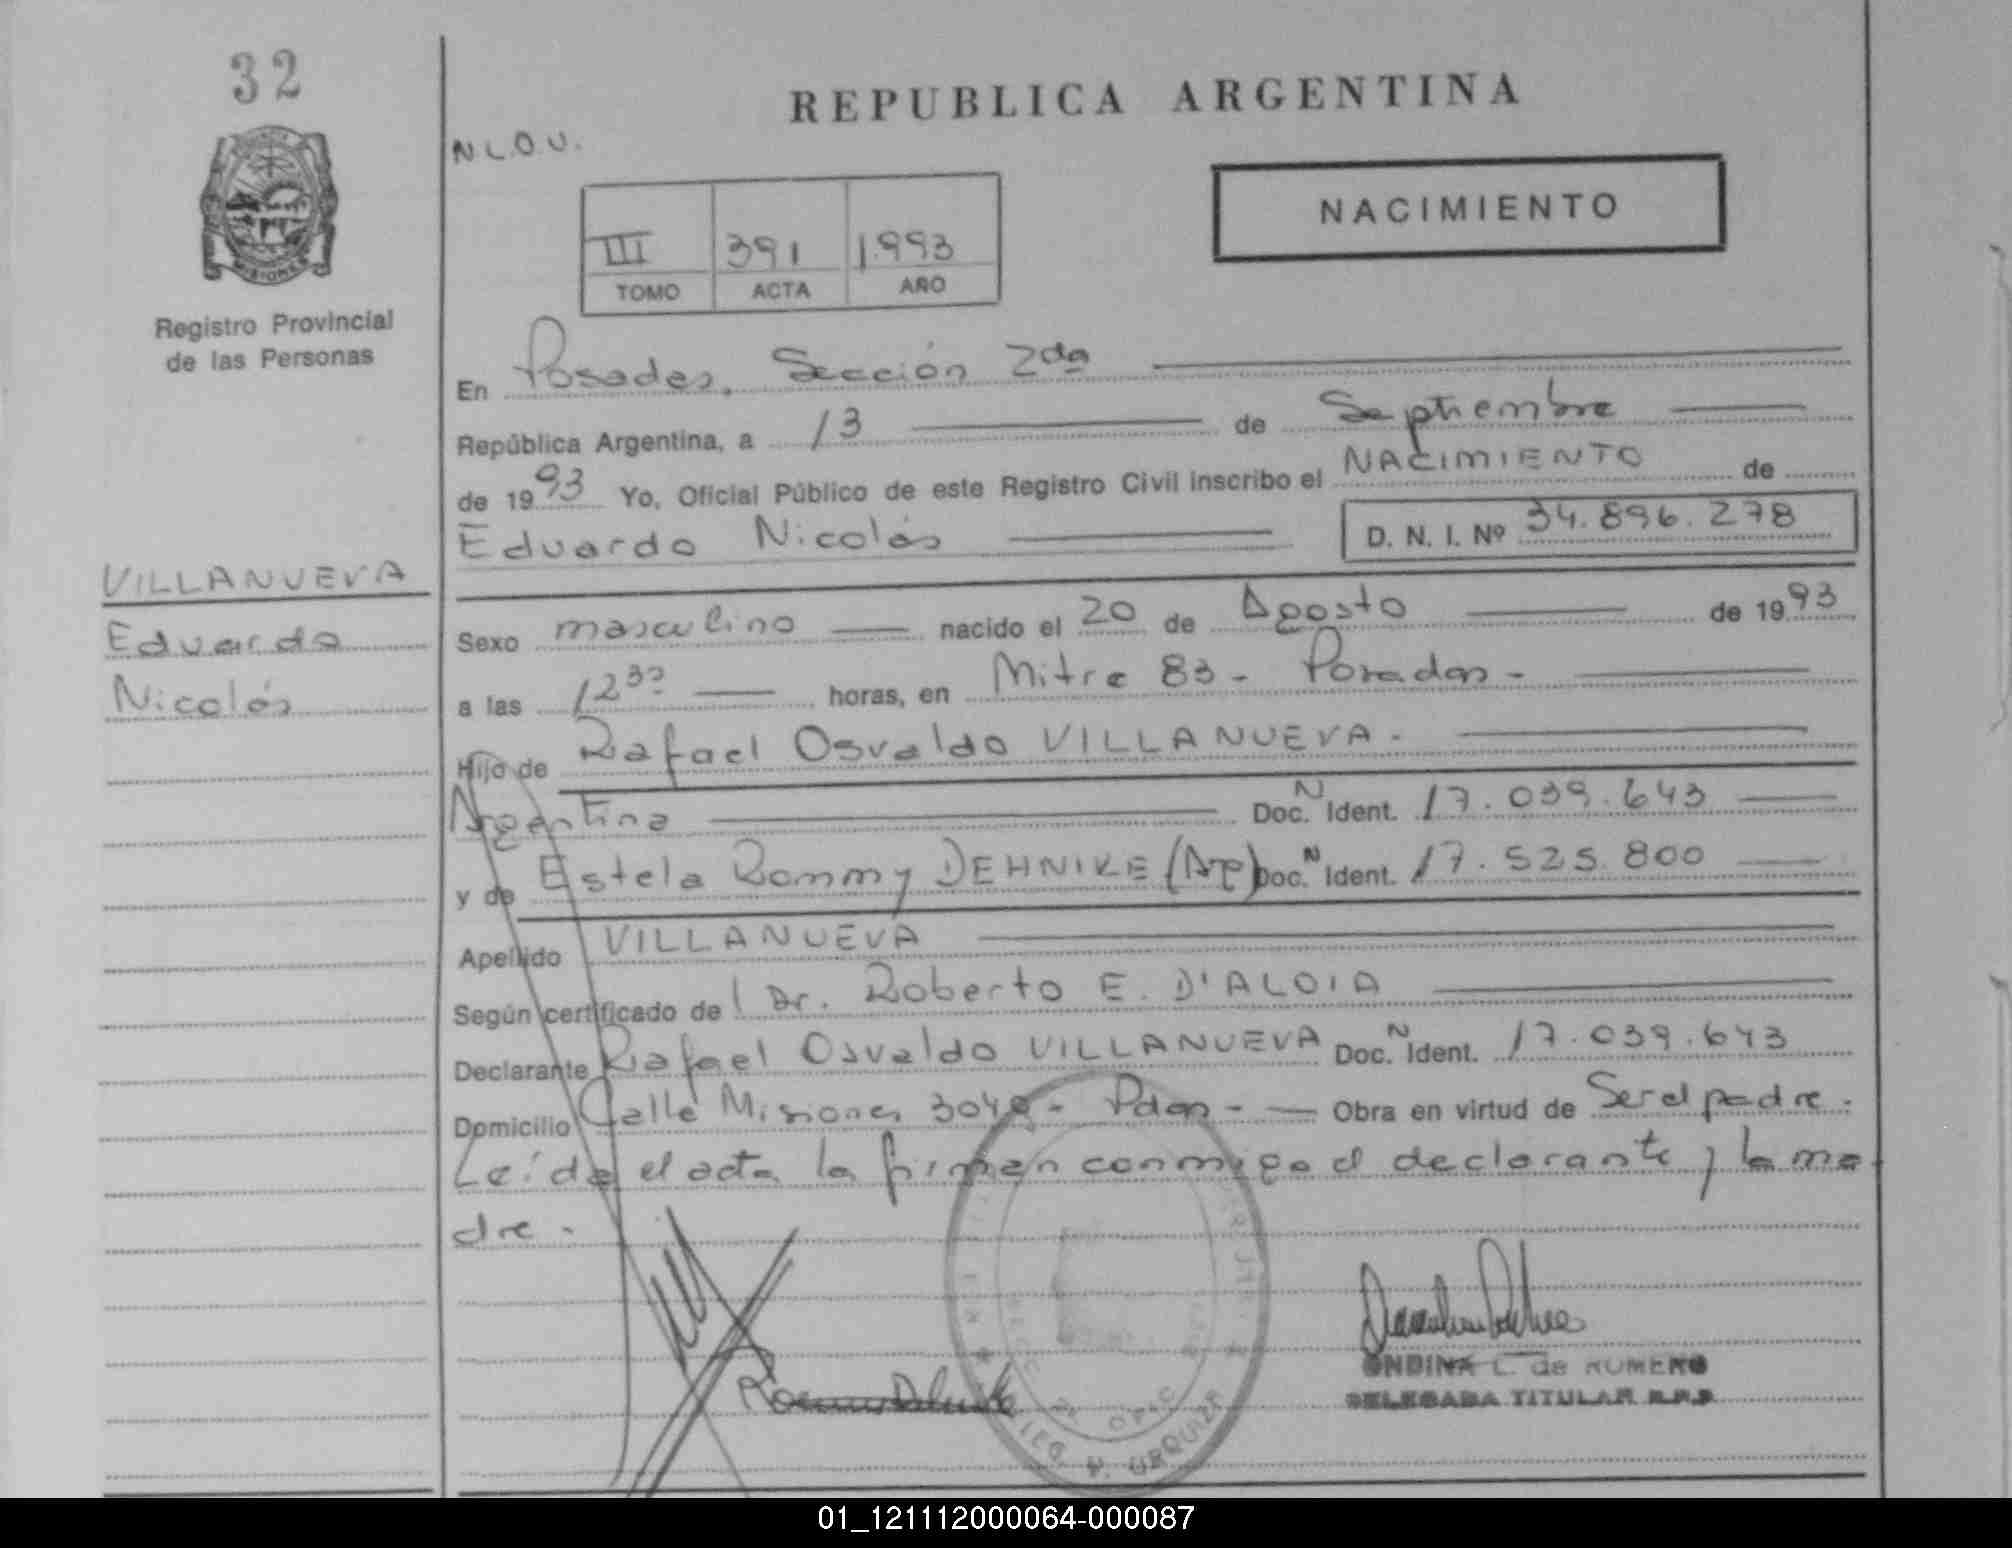 32
REPUBLICA ARGENTINA
N.L.O.U.
NACIMIENTO
III 391 1.993
TOMO ACTA AÑO
MISIONES
Registro Provincial
de las Personas
En Posadas, Sección 2da
República Argentina, a 13 de Septiembre
de 1993 Yo, Oficial Público de este Registro Civil inscribo el NACIMIENTO de
Eduardo Nicolás D. N. I. Nº 34.896.278
VILLANUEVA
Eduardo
Nicolás
Sexo masculino nacido el 20 de Agosto de 1993
a las 12 30 horas, en Mitre 83 - Posadas -
Hijo de Rafael Osvaldo VILLANUEVA.
Argentina Doc. N Ident. 17.039.643
y de Estela Rommy DEHNIKE (Arg) Doc. N Ident. 17.525.800
Apellido VILLANUEVA
Según certificado de Dr. Roberto E. D'ALOIA
Declarante Rafael Osvaldo VILLANUEVA Doc. N Ident. 17.039.643
Domicilio Calle Misiones - Pdas - Obra en virtud de Ser el padre.
Leída el acta la firman conmigo el declarante y la ma
dre.
ONDINA L. de ROMERO
DELEGADA TITULAR R.P.P
URQUIZA
01_121112000064-000087